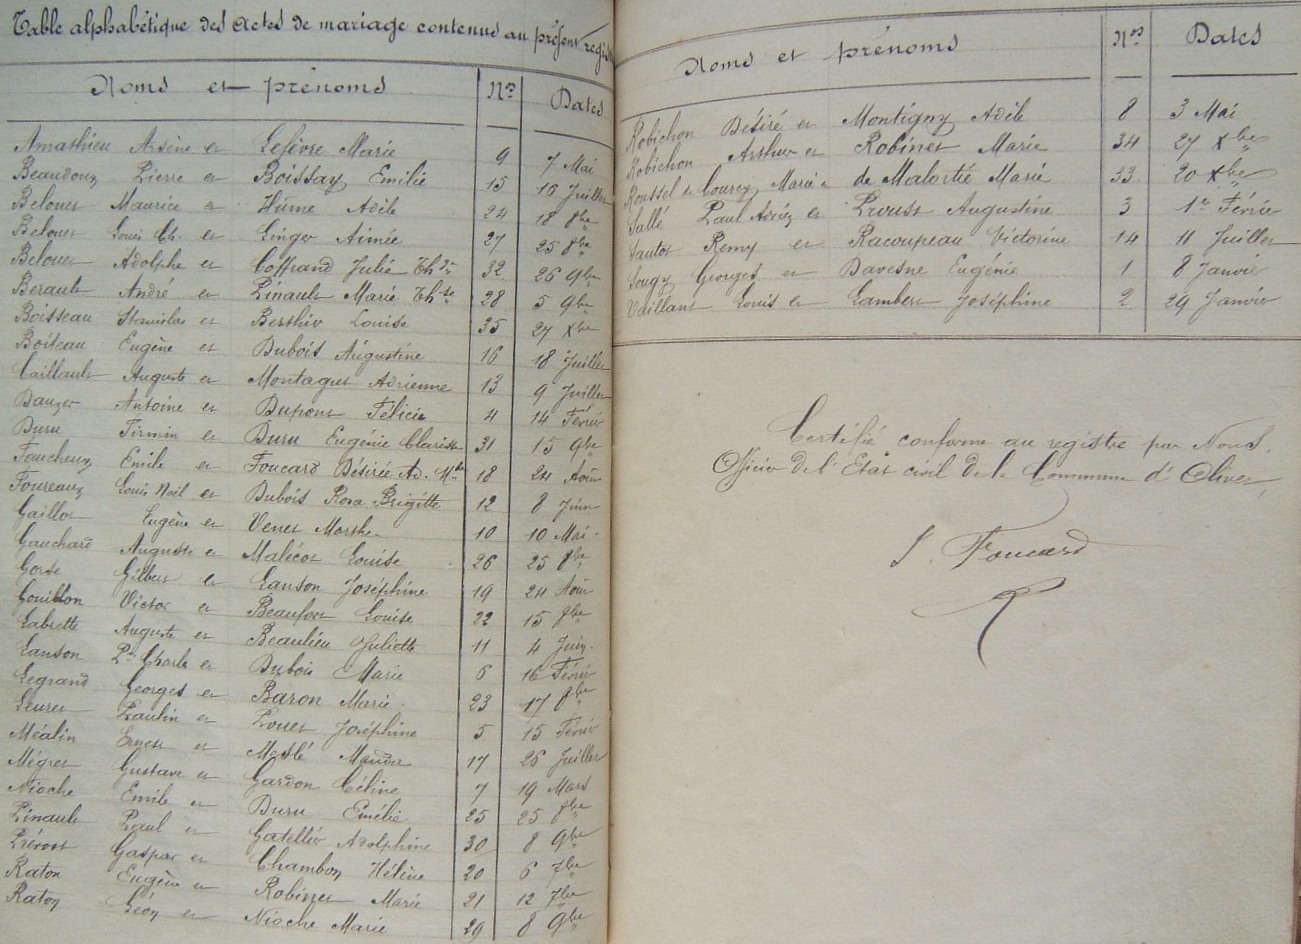 Table alphabétique des Actes de mariage contenus au présent regis
Noms et prénoms Nos Dates
Amathieu Arsène et Lefèvre Marie 9 7 Mai
Beaudoux Pierre et Boissay Emilie 15 16 Juillet
Belouet Maurice et Hume Adèle 24 18 8bre
Belouet Louis Ch. et Ginger Aimée 27 25 8bre
Belouet Adolphe et Coffrand Julie Thse 32 26 9bre
Berault André et Pinault Marie Thse 28 5 9bre
Boisseau Stanislas et Berthier Louise 35 27 Xbre
Boiteau Eugène et Dubois Augustine 16 18 Juillet
Caillault Auguste et Montagut Adrienne 13 9 Juillet
Danger Antoine et Dupont Félicie 4 14 Février
Duru Firmin et Duru Eugénie Clarisse 31 15 9bre
Faucheux Emile et Foucard Désirée Ad. Mie 18 24 Août
Foureaux Louis Noël et Dubois Rosa Brigitte 12 8 Juin
Gaillot Eugène et Venet Marthe 10 10 Mai
Gauchard Auguste et Malécot Louise 26 25 8bre
Gorse Gilbert et Lanson Joséphine 19 24 Août
Gouillon Victor et Beaufort Louise 22 15 8bre
Labrette Auguste et Beaulieu Juliette 11 4 Juin
Lanson Pre Charles et Dubois Marie 6 16 Février
Legrand Georges et Baron Marie 23 17 8bre
Leuret Paulin et Pouet Joséphine 5 15 Février
Méalin Ernest et Meslé Maudre 17 26 Juillet
Mégret Gustave et Gardon Céline 7 19 Mars
Nioche Emile et Duru Emélie 25 25 8bre
Pinault Paul et Gatellier Adolphine 30 8 9bre
Prévost Gaspar et Chambon Hélène 20 6 7bre
Raton Eugène et Robinet Marie 21 12 7bre
Raton Léon et Nioche Marie 29 8 9bre
Noms et prénoms Nos Dates
Robichon Désiré et Montigny Adèle 8 3 Mai
Robichon Arthur et Robinet Marie 34 27 Xbre
Roussel de Courcy Marie et de Malortie Marie 33 20 Xbre
Sallé Paul Adrien et Proust Augustine 3 1er Février
Sautot Remy et Racoupeau Victorine 14 11 Juillet
Sougy Georges et Davesne Eugénie 1 8 Janvier
Vaillant Louis et Lambert Joséphine 2 29 Janvier
Certifié conforme au registre par Nous,
Officier de l'Etat civil de la Commune d'Olivet,
J. Foucard